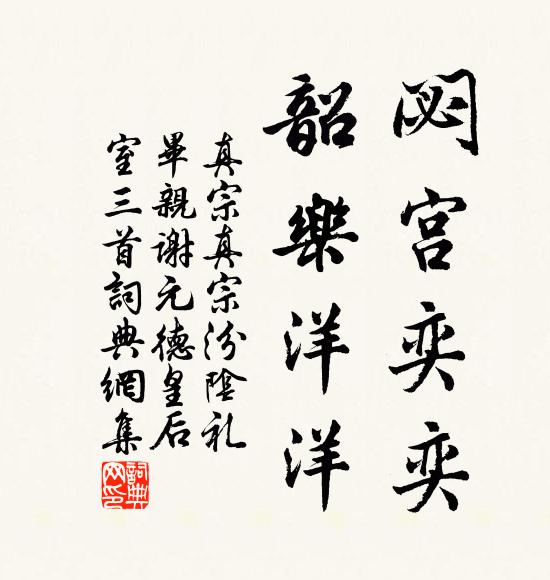 閟宫奕奕
韶樂洋洋
真宗真宗汾陰礼
畢親謝元德皇后
室三首詞典網集
詞典網印